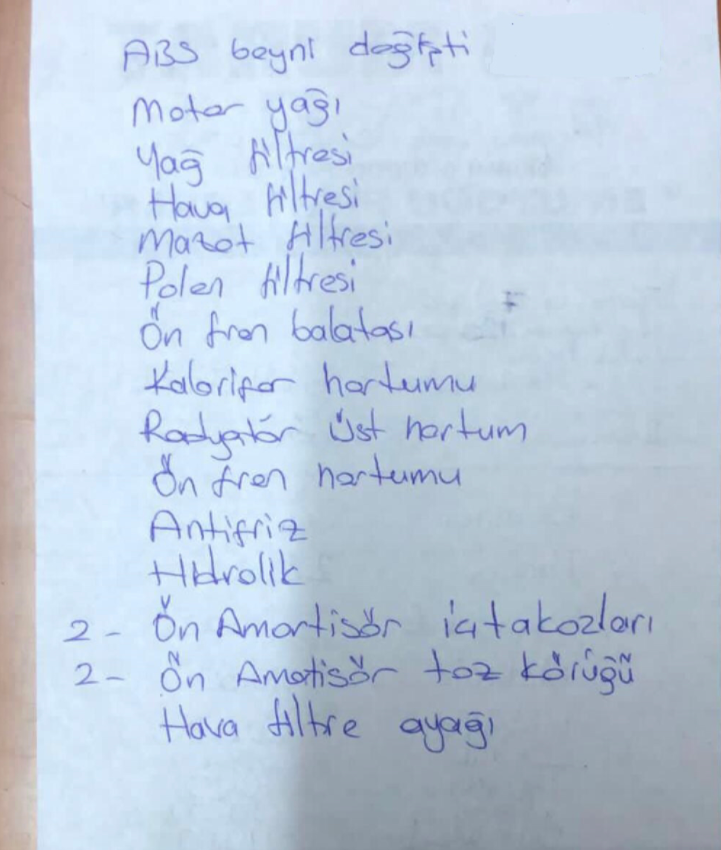 ABS beyni değişti
Motor yağı
Yağ filtresi
Hava filtresi
Mazot filtresi
Polen filtresi
Ön fren balatası
Kalorifer hortumu
Radyatör üst hortum
Ön fren hortumu
Antifriz
Hidrolik
2- Ön Amortisör iç takozları
2- Ön Amatisör toz körüğü
Hava filtre ayağı